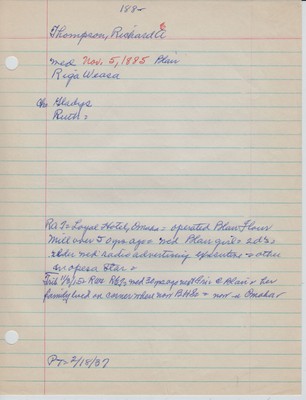 188-
Thompson, Richard A
med Nov. 5, 1885 Blair
Riga Weasa
Ch Gladys
Ruth =
R at Loyal Hotel, Omaha = operated Blair Flour
Mill over 50 yrs ago = med Blair girl = 2 d's =
older med radio advertising executive = other
an opera star =
Trib 1/9/25= med 30 yrs ago @ Blair = her
family lived on corner where now = now = Omaha=
2/18/37